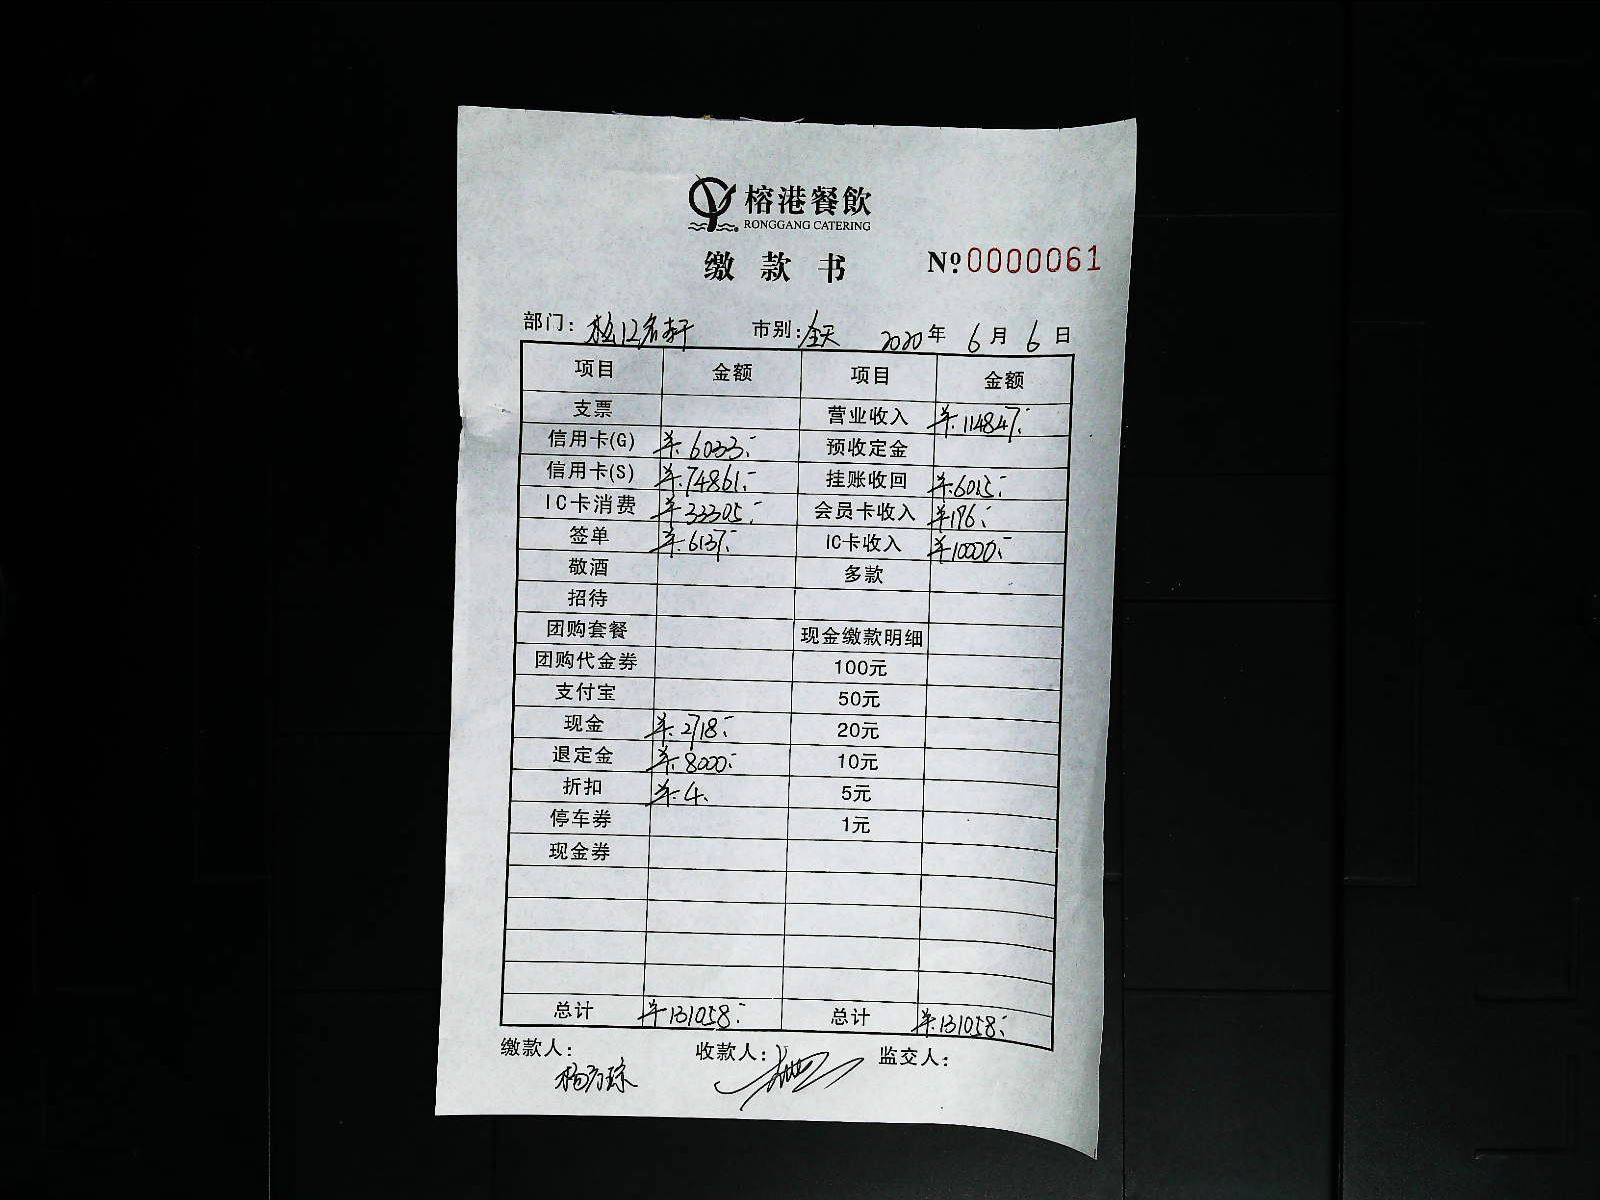 榕港餐飲
RONGGANG CATERING
缴款书 №0000061
部门: 名轩 市别: 全天 2020年6月6日
项目 金额 项目 金额
支票 营业收入 ¥:114847.-
信用卡(G) ¥:6033.- 预收定金
信用卡(S) ¥:74861.- 挂账收回 ¥:6015.-
IC卡消费 ¥33305.- 会员卡收入 ¥196.-
签单 ¥:6137.- IC卡收入 ¥10000.-
敬酒 多款
招待
团购套餐 现金缴款明细
团购代金券 100元
支付宝 50元
现金 ¥:2718.- 20元
退定金 ¥:8000.- 10元
折扣 ¥:4. 5元
停车券 1元
现金券
总计 ¥131058.- 总计 ¥:131058.-
缴款人: 收款人: 监交人: